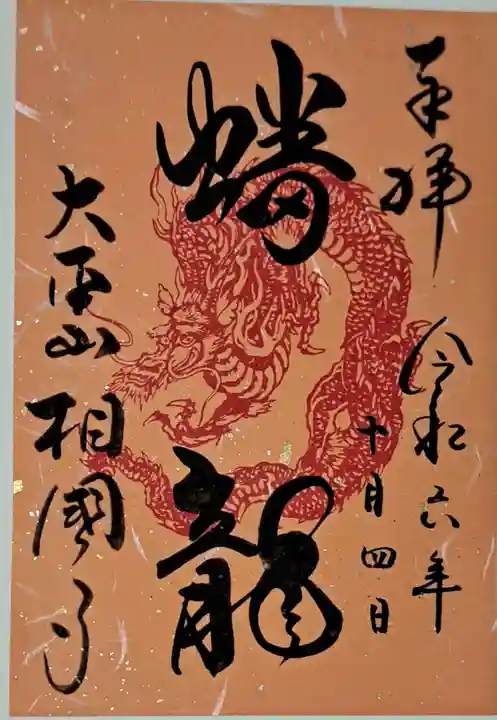 奉拝 令和六年
十月四日
蟠龍
大本山 相國寺